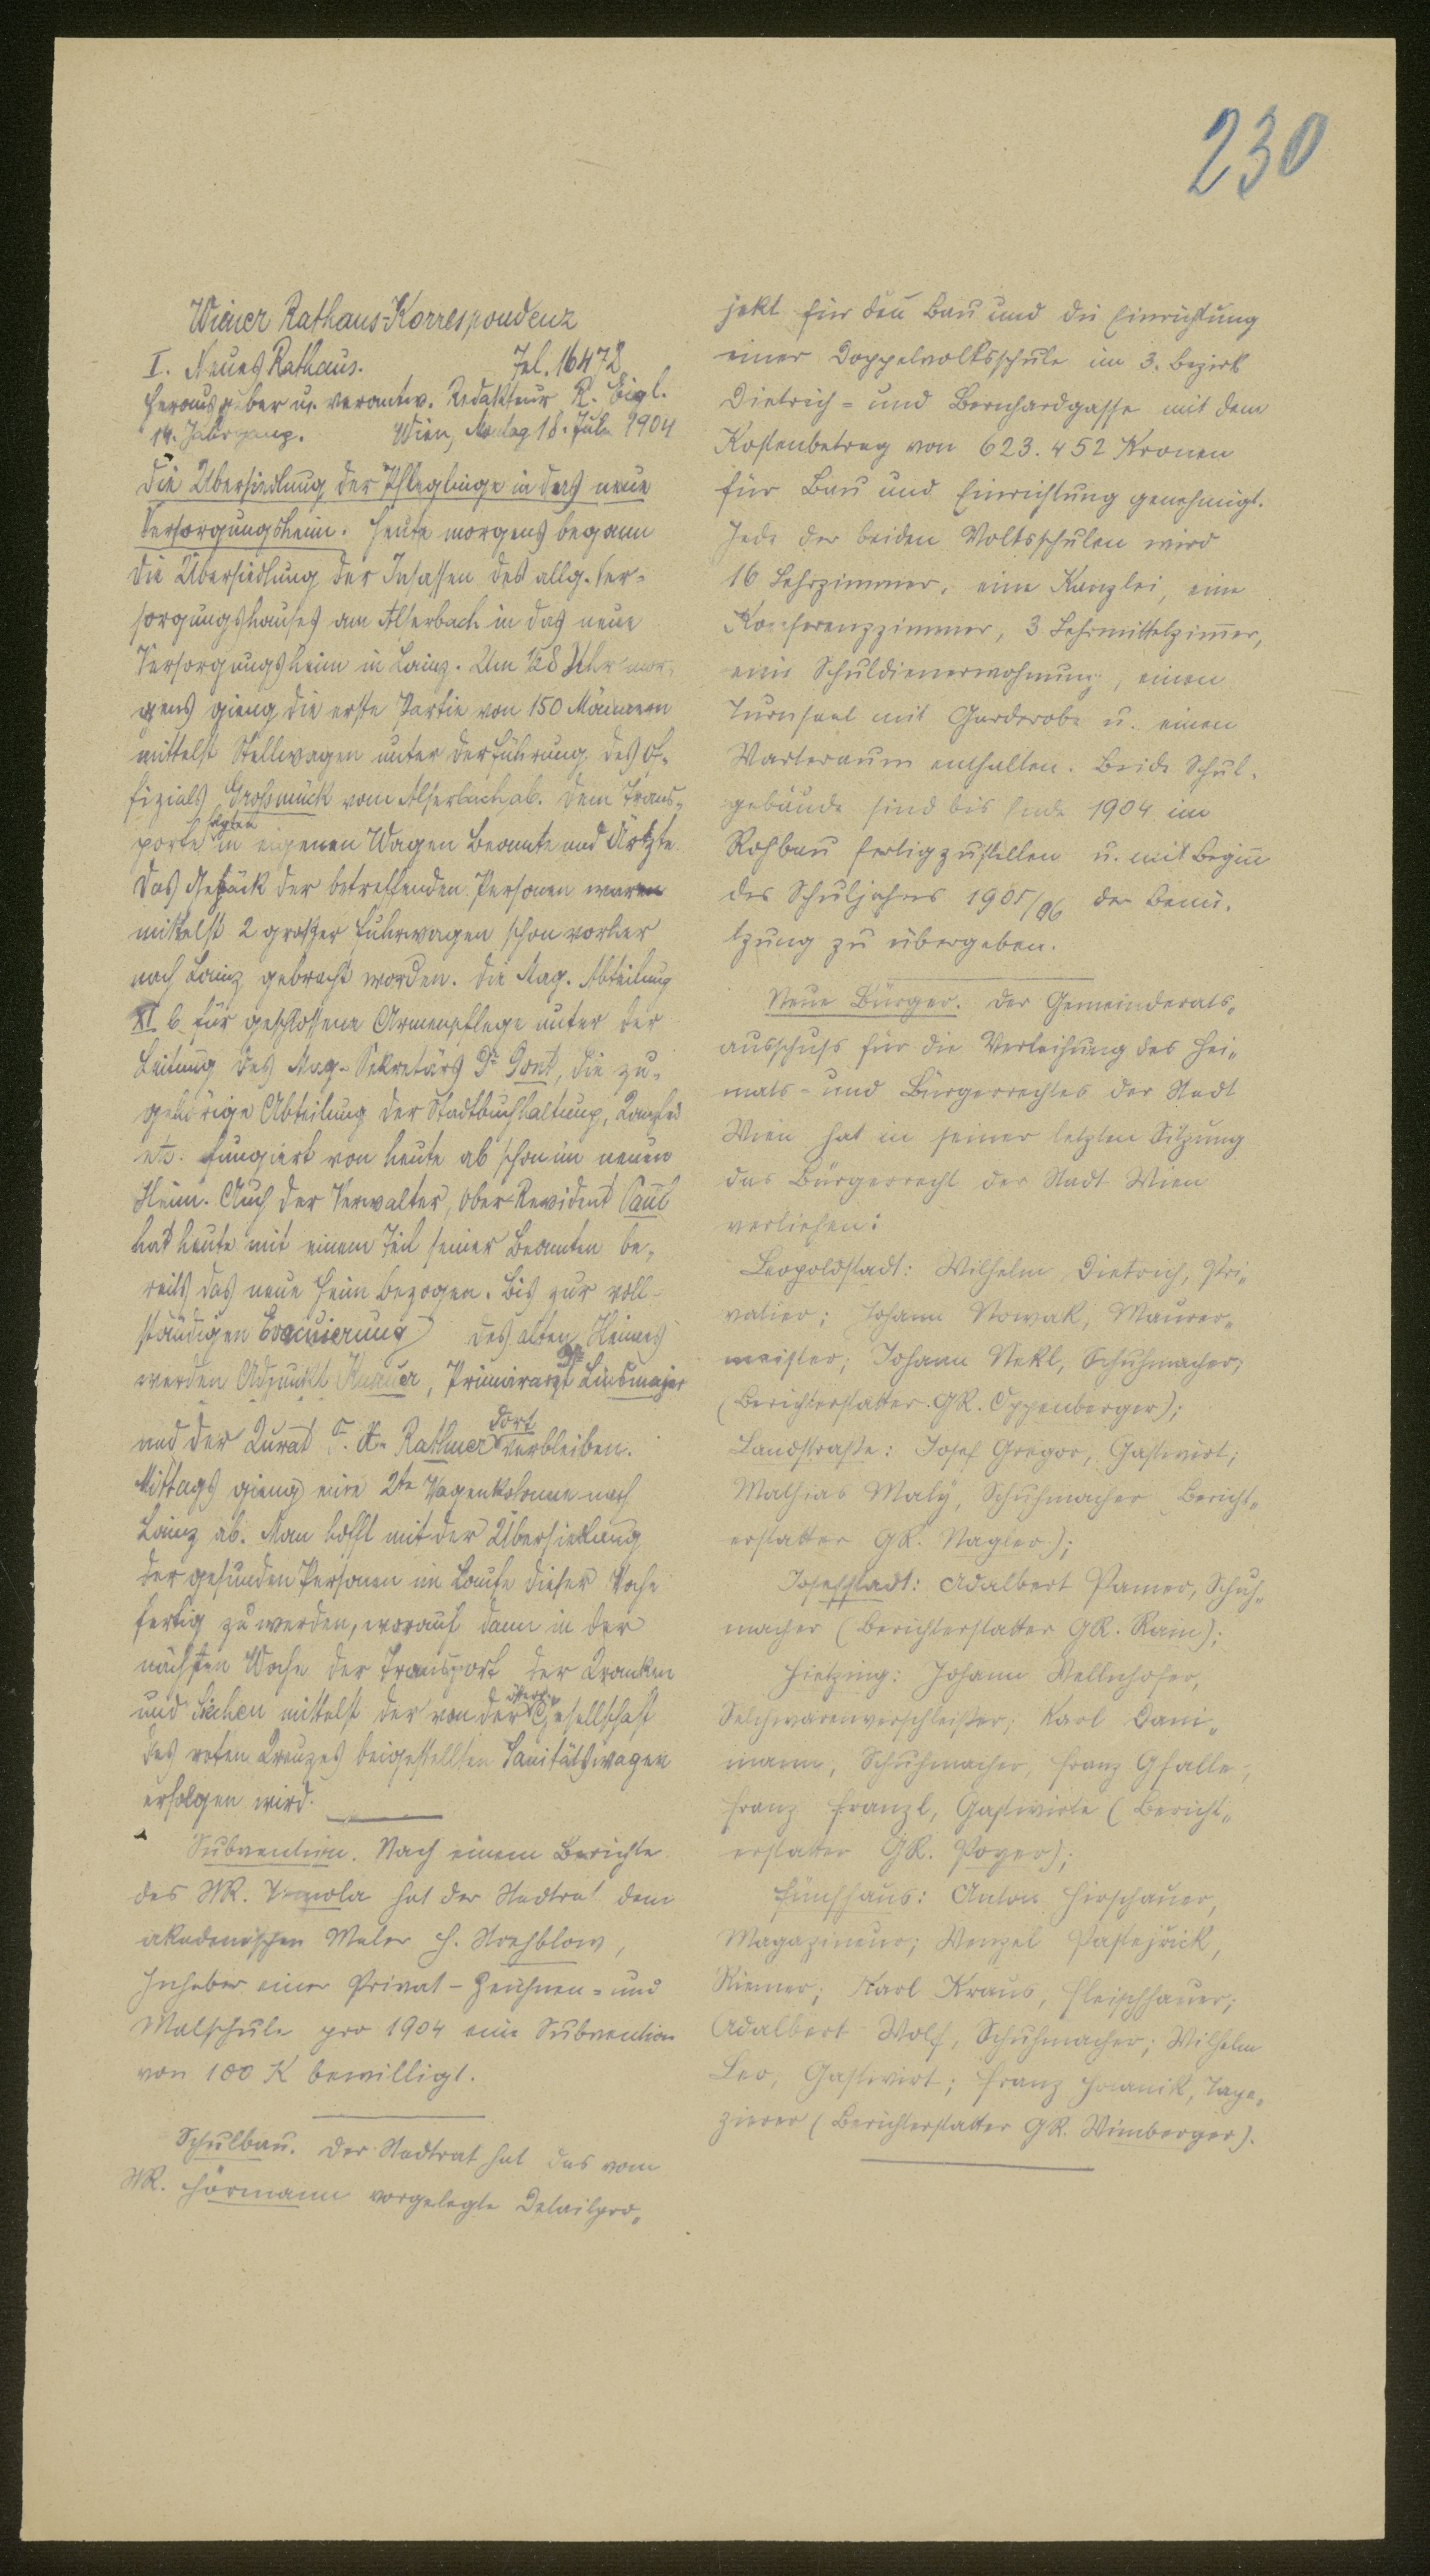 230
Wiener Rathaus-Korrespondenz
I. Neues Rathaus. Tel. 16472
Herausgeber u. verantw. Redakteur R. Eigl.
14. Jahrgang. Wien, Montag 18. Juli 1904
Die Übersiedlung der Pfleglinge in das neue
Versorgungsheim. Heute morgens begann
die Übersiedlung der Insassen des allg. Ver-
sorgungshauses am Alserbach in das neue
Versorgungsheim in Lainz. Um ½8 Uhr mor-
gens gieng die erste Partie von 150 Männern
mittelst Stellwagen unter der Führung des Of-
fizials Großmück vom Alserbach ab. Dem Trans-
porte folgten in eigenen Wagen Beamte und Ärzte.
Das Gepäck der betreffenden Personen waren
mittelst 2 großer Fuhrwagen schon vorher
nach Lainz gebracht worden. Die Mag. Abteilung
XI b für geschlossene Armenpflege unter der
Leitung des Mag.-Sekretärs Dr Dont, die zu-
gehörige Abteilung der Stadtbuchhaltung, Kanzlei
etc. fungiert von heute ab schon im neuen
Heim. Auch der Verwalter, Ober-Revident Paul
hat heute mit einem Teil seiner Beamten be-
reits das neue Heim bezogen. Bis zur voll-
ständigen Evacuierung des alten Heimes
werden Adjunkt, Primararzt Dr Linsmajer
und der Kurat P. A. Rathner dort verbleiben.
Mittags gieng eine 2te Wagenkolonne nach
Lainz ab. Man hofft mit der Übersiedlung
der gesunden Personen im Laufe dieser Woche
fertig zu werden, worauf dann in der
nächsten Woche der Transport der Kranken
und Siechen mittelst der von der österr. Gesellschaft
des roten Kreuzes beigestellten Sanitätswagen
erfolgen wird.
Subvention. Nach einem Berichte
des StR. Tomola hat der Stadtrat dem
akademischen Maler H. Strehblow,
Inhaber einer Privat-Zeichnen- und
Malschule pro 1904 eine Subvention
von 100 K bewilligt.
Schulbau. Der Stadtrat hat das vom
StR. Hörmann vorgelegte Detailpro-
jekt für den Bau und die Einrichtung
einer Doppelvolksschule im 3. Bezirk
Dietrich- und Bernhardgasse mit dem
Kostenbetrag von 623.452 Kronen
für Bau und Einrichtung genehmigt.
Jede der beiden Volksschulen wird
16 Lehrzimmer, eine Kanzlei, ein
Konferenzzimmer, 3 Lehrmittelzimmer,
eine Schuldienerwohnung, einen
Turnsaal mit Garderobe u. einen
Warteraum enthalten. Beide Schul-
gebäude sind bis Ende 1904 im
Rohbau fertigzustellen u. mit Beginn
des Schuljahres 1905/06 der Benü-
tzung zu übergeben.
Neue Bürger. Der Gemeinderats-
ausschuß für die Verleihung des Hei-
mats- und Bürgerrechtes der Stadt
Wien hat in seiner letzten Sitzung
das Bürgerrecht der Stadt Wien
verliehen:
Leopoldstadt: Wilhelm Dietrich, Pri-
vatier; Johann Nowak, Maurer-
meister; Johann Nekl, Schuhmacher;
(Berichterstatter GR. Oppenberger);
Landstraße: Josef Gregor, Gastwirt;
Mathias Malý, Schuhmacher Bericht-
erstatter GR. Nagler);
Josefstadt: Adalbert Pamer, Schuh-
macher (Berichterstatter GR. Rain);
Hietzing: Johann Wellnhofer,
Selchwarenverschleißer; Karl Dani-
mann, Schuhmacher, Franz Gfalle-,
Franz Franzl, Gastwirte (Bericht-
erstatter GR. Poyer);
Fünfhaus: Anton Hirschauer,
Magazineur; Wenzel Pastejřik,
Riemer; Karl Kraus, Fleischhauer;
Adalbert Wolf, Schuhmacher; Wilhelm
Leo, Gastwirt; Franz, Tape-
zierer (Berichterstatter GR. Wimberger).